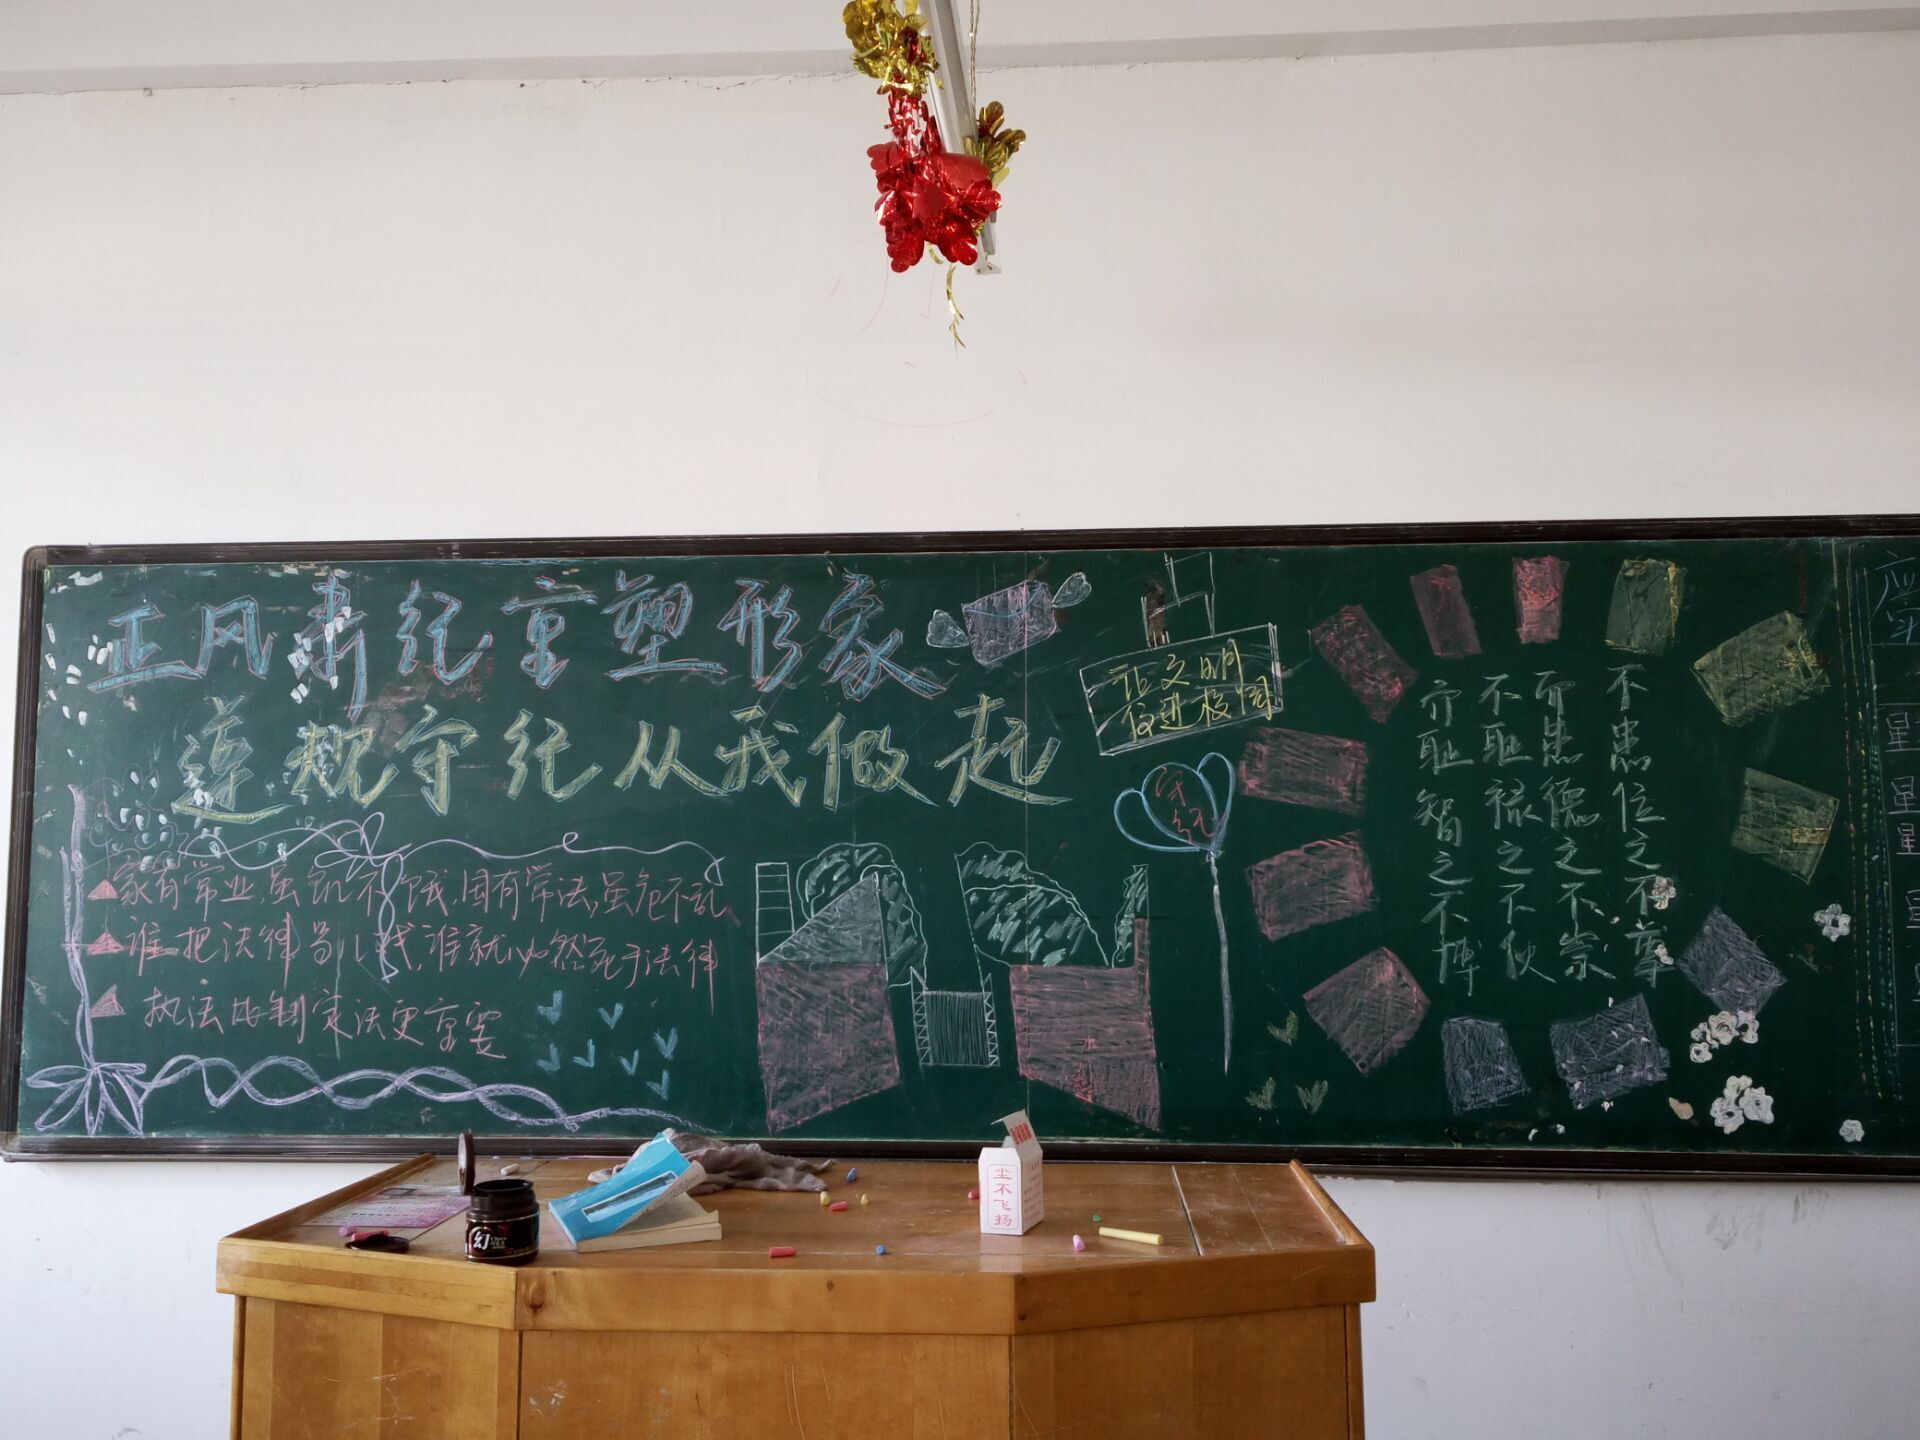 正风肃纪重塑形象
遵规守纪从我做起
家有常业,虽饥不饿,国有常法,虽危不乱
谁把法律当儿戏,谁就必然死于法律
执法比制定法更重要
让文明
行进校园
守纪
不患位之不尊
而患德之不崇
不耻禄之不伙
而耻智之不博
星
星
星
尘不飞扬
幻